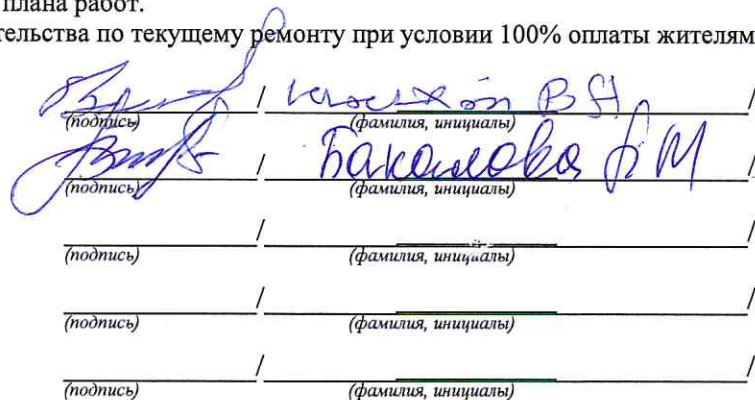 плана работ.
тельства по текущему ремонту при условии 100% оплаты жителям
/ /
(подпись) (фамилия, инициалы)
/ Бакалова /
(подпись) (фамилия, инициалы)
/ /
(подпись) (фамилия, инициалы)
/ /
(подпись) (фамилия, инициалы)
/ /
(подпись) (фамилия, инициалы)